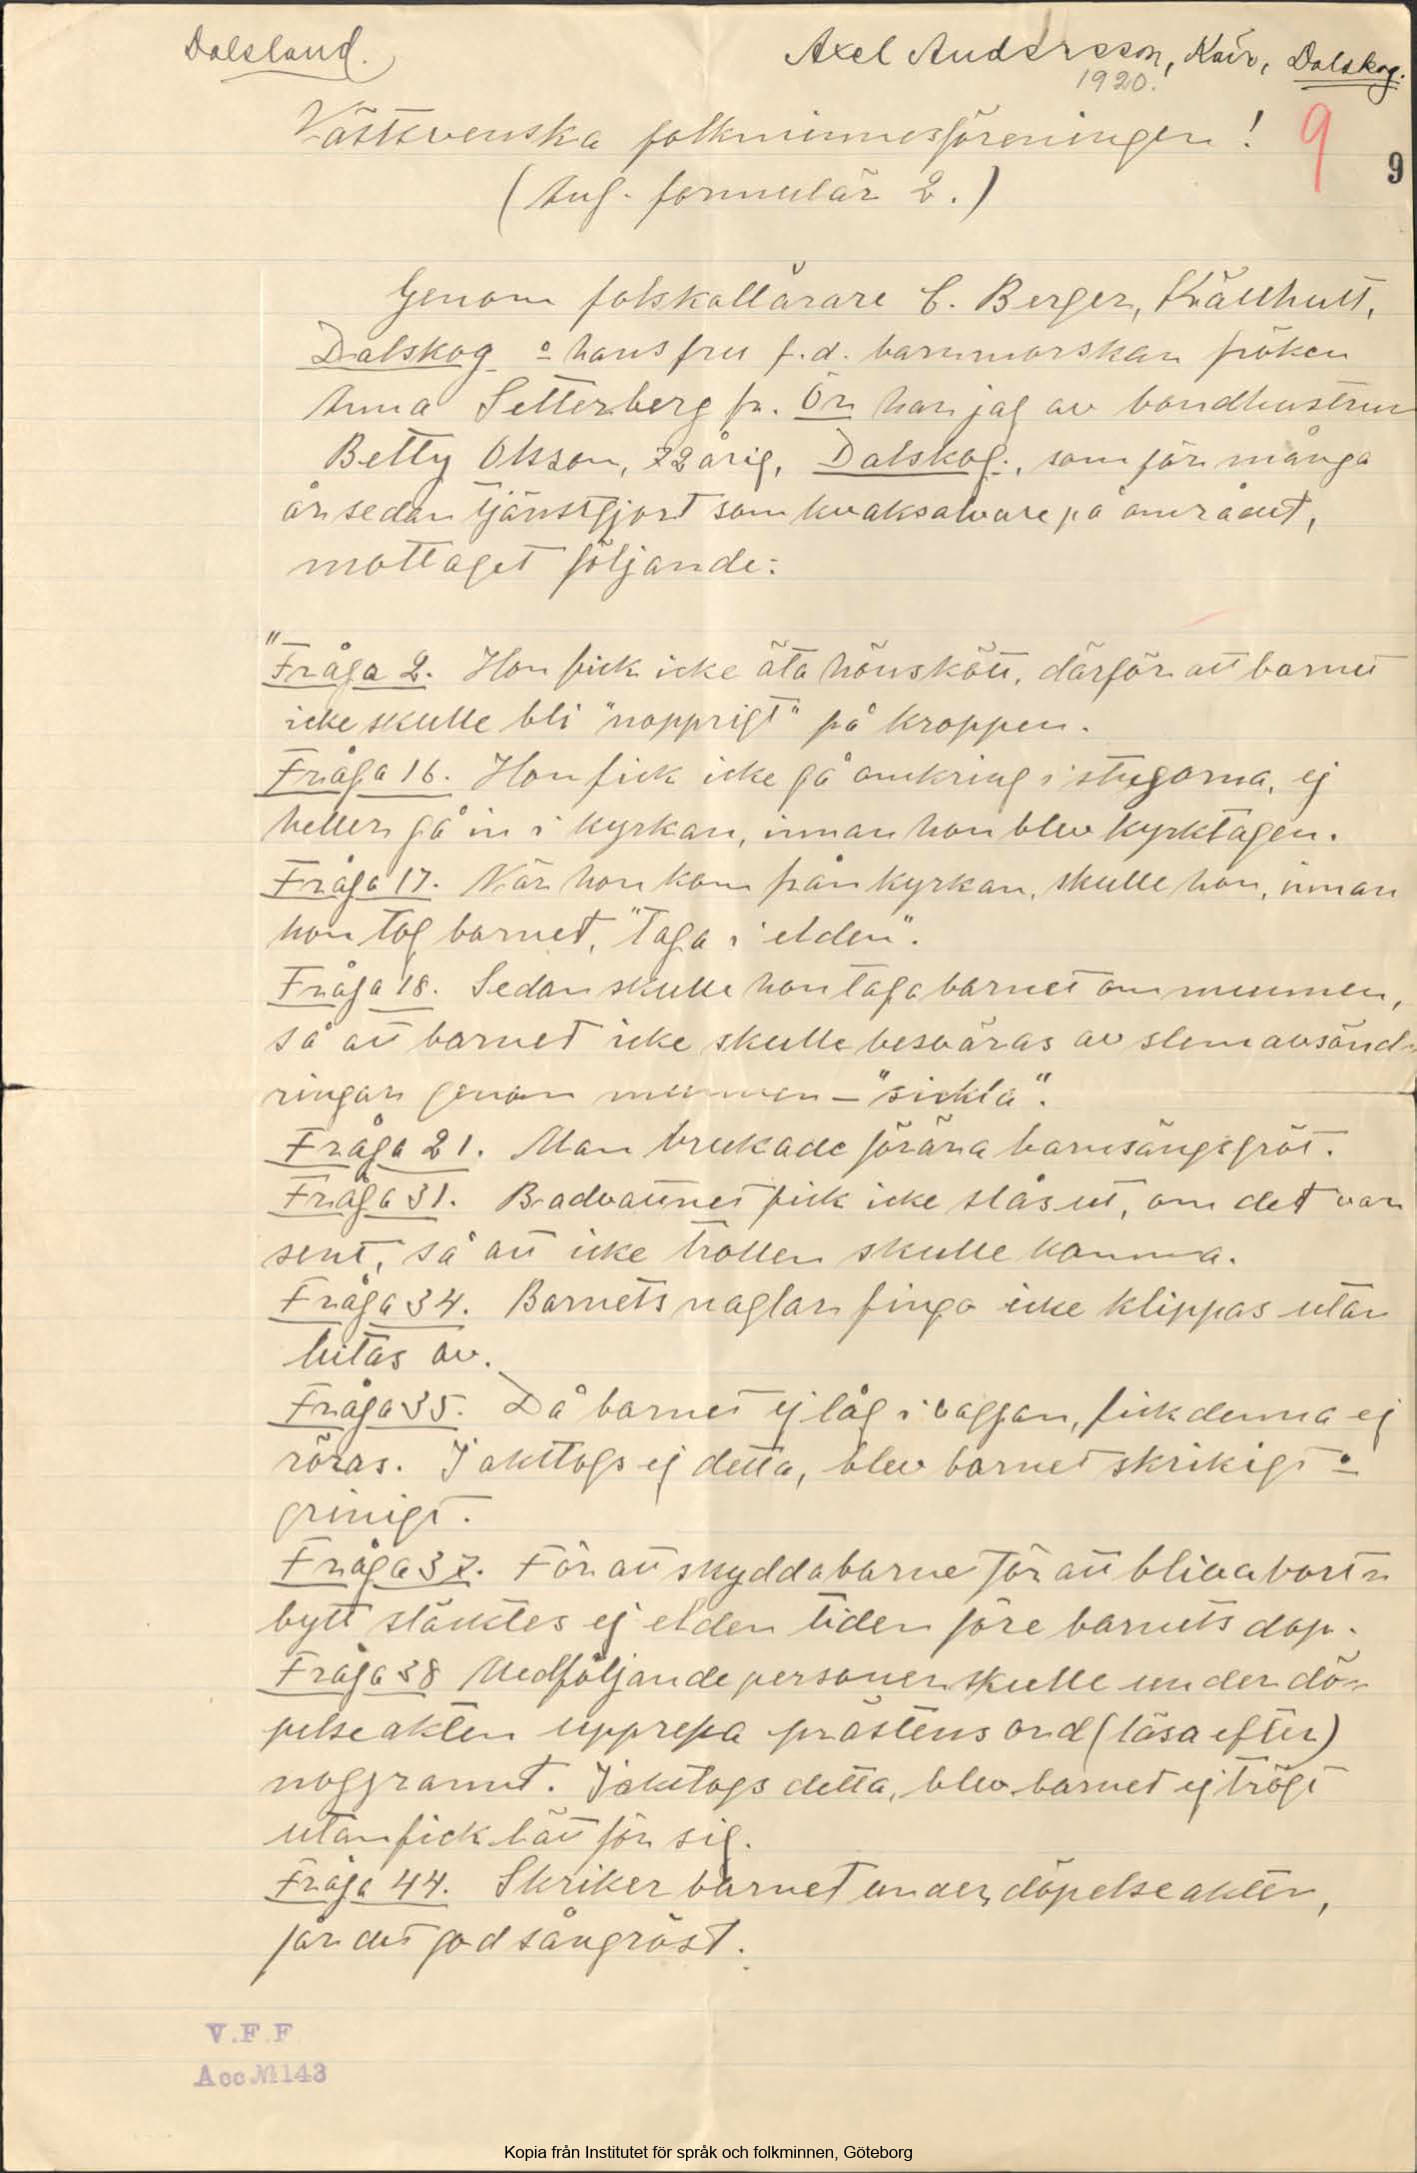 Dalsland.
Axel Andersson, Kärr, Dalskog.
1920.
Västsvenska folkminnesföreningen!
9
9
(Ang. formulär 2.)
Genom folkskollärare C. Berger, Källhult,
Dalskog o hans fru f.d. barnmorskan fröken
Anna Setterberg fr. Ör har jag av bondhustrun
Betty Olsson, 72årig, Dalskog, som för många
år sedan tjänstgjort som kvaksalvare på området,
mottaget följande:
"Fråga 2. Hon fick icke äta hönskött, därför att barnet
icke skulle bli "nopprigt" på kroppen.
Fråga 16. Hon fick icke gå omkring i stugorna, ej
heller gå in i kyrkan, innan hon blev kyrktagen.
Fråga 17. När hon kom från kyrkan, skulle hon, innan
hon tog barnet, "taga i elden".
Fråga 18. Sedan skulle hon taga barnet om munnen,
så att barnet icke skulle besväras av slemavsönd-
ringar genom munnen – "sickla".
Fråga 21. Man brukade förära barnsängsgröt.
Fråga 31. Badvattnet fick icke slås ut, om det var
sent, så att icke trollen skulle komma.
Fråga 34. Barnets naglar fingo icke klippas utan
bitas av.
Fråga 35. Då barnet ej låg i vaggan, fick denna ej
röras. Iakttogs ej detta, blev barnet skrikigt o
grinigt.
Fråga 37. För att skydda barnet för att bliva bort-
bytt släcktes ej elden tiden före barnets dop.
Fråga 38 Medföljande personer skulle under dö-
pelseakten upprepa prästens ord (läsa efter)
noggrannt. Iakttogs detta, blev barnet ej trögt
utan fick lätt för sig.
Fråga 44. Skriker barnet under döpelseakten,
får det god sångröst.
V.F.F
Acc № 143
Kopia från Institutet för språk och folkminnen, Göteborg